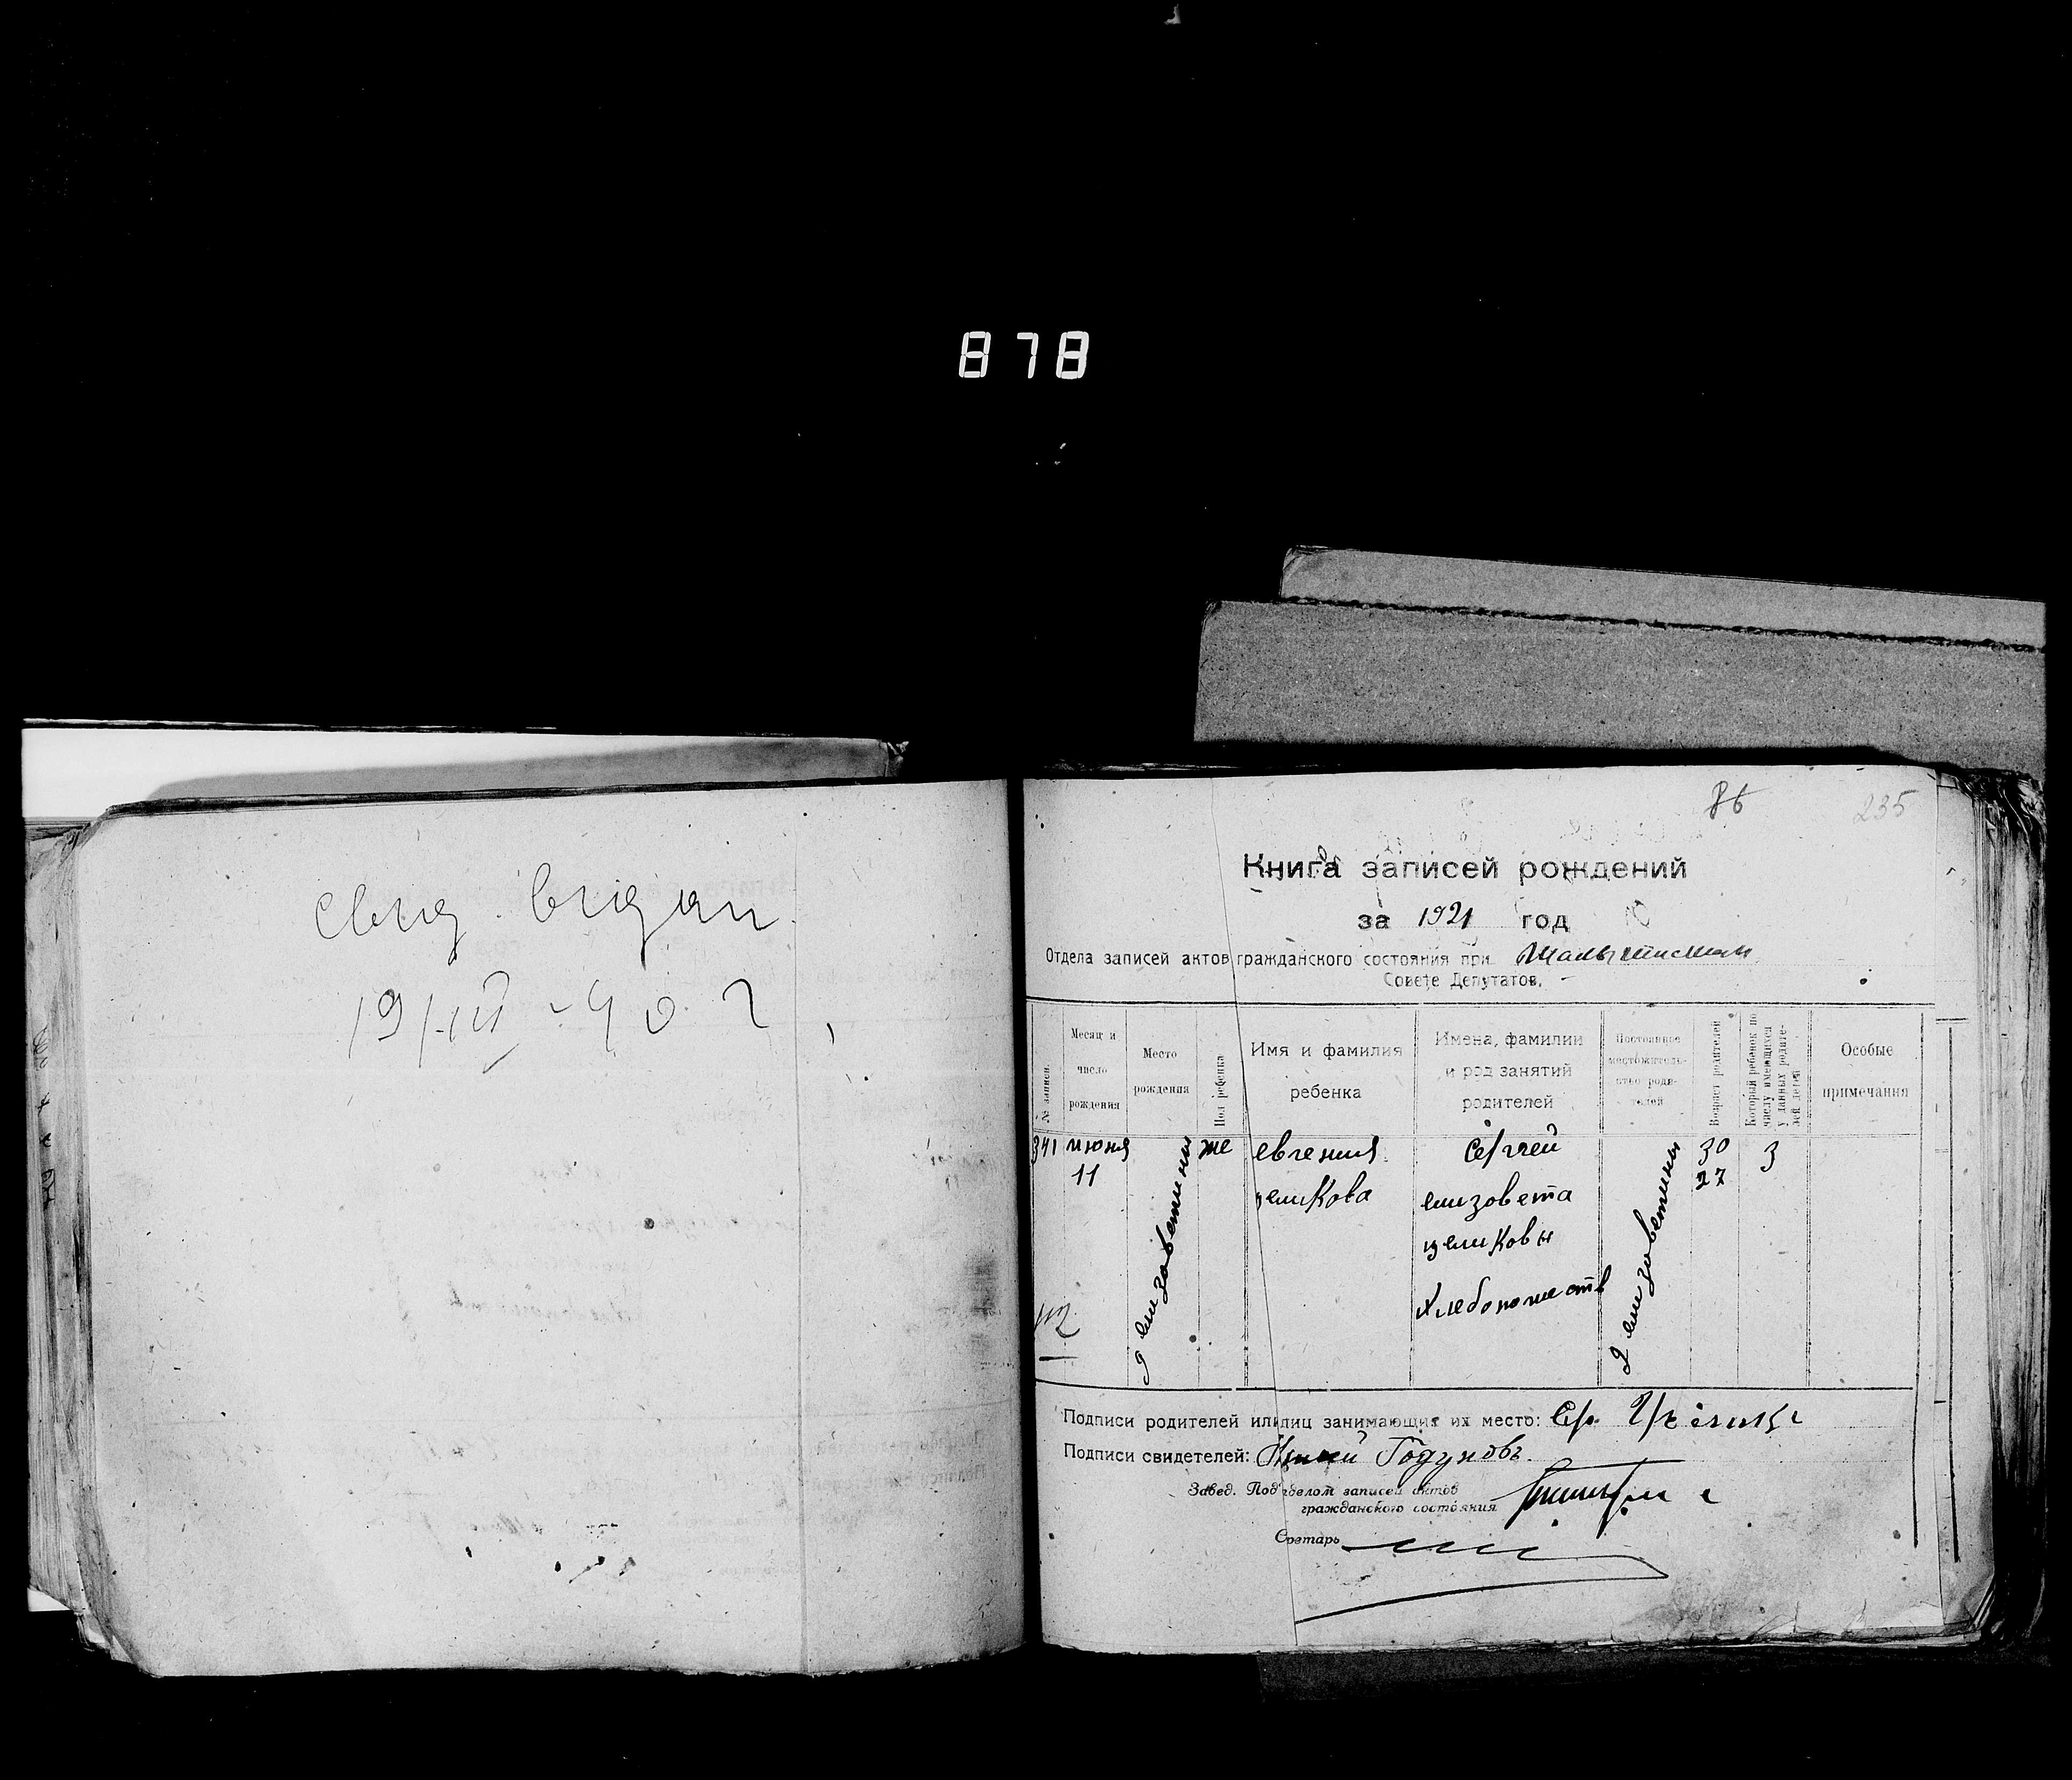 878
свид. выдан
19/III - 40 г
86 235
Книга записей рождений
за 1921 год
Отдела записей актов гражданского состояния при
Совете Депутатов.
№ записи.
Месяц и число рождения
Место рождения
Пол ребенка
Имя и фамилия ребенка
Имена, фамилии и род занятий родителей
Постоянное местожительство родителей
Возраст родителей
Который ребенок по числу имеющихся у данных родителей детей
Особые примечания
341 июня же евгения Сергей 30 3
11 27
целикова елизовета
целиковы
хлебопашеств
д елизоветины
д елизоветины
Подписи родителей или лиц занимающия их место: Ср.
Подписи свидетелей: Годуновъ.
Завед. Под'отделом записей актов
гражданского состояния
Сретарь